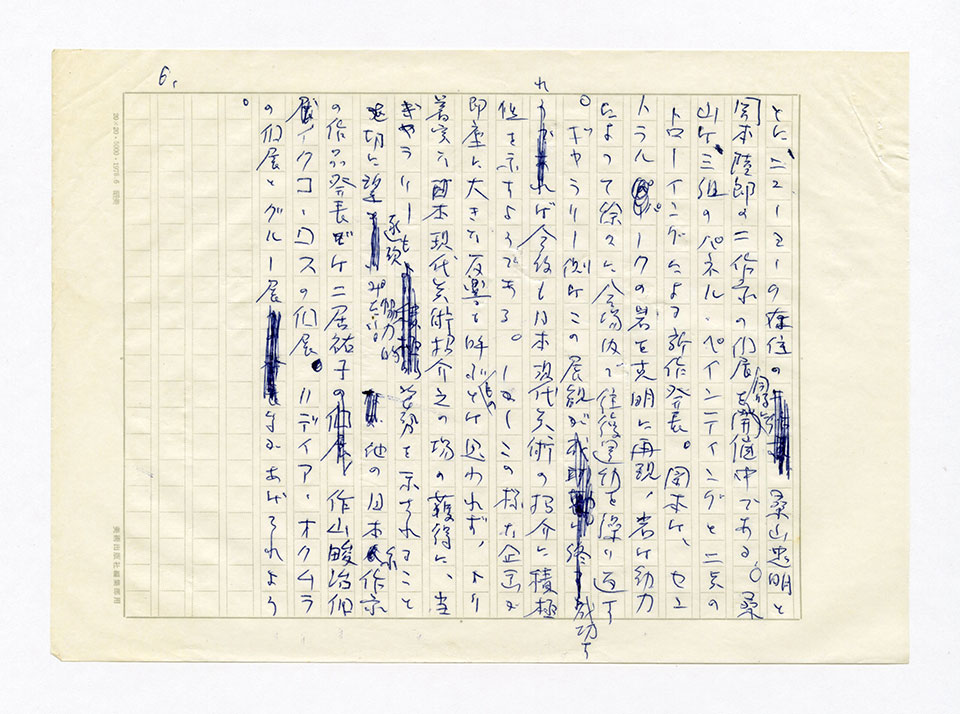 6.
とに、ニューヨークの在住の 桑山忠明と
岡本陸郎の二作家の個展を同時に開催中である。桑
山は、三組のパネル・ペインティングと二点の
ドローイングによる新作発表。岡本は、セン
トラル・パークの岩を克明に再現、岩は動力
によって徐々に会場内で往復運動を繰り返す
。ギャラリー側はこの展観が成功す
れば今後も日本現代美術の紹介に積極
性を示すようである。しかしこの様な企画が
即座に大きな反響を呼ぶものとは思われず、より
着実な日本現代美術紹介之の場の獲得に、当
ギャラリーも逐次協力的姿勢を示されること
を切に望みたい。 他の日本人作家
の作品発表では二居祐子の 作山畯治個
展イクコ・ロスの個展。リディア・オクムラ
の個展とグループ展 があげられよう
。
20×20・5000・1975.5